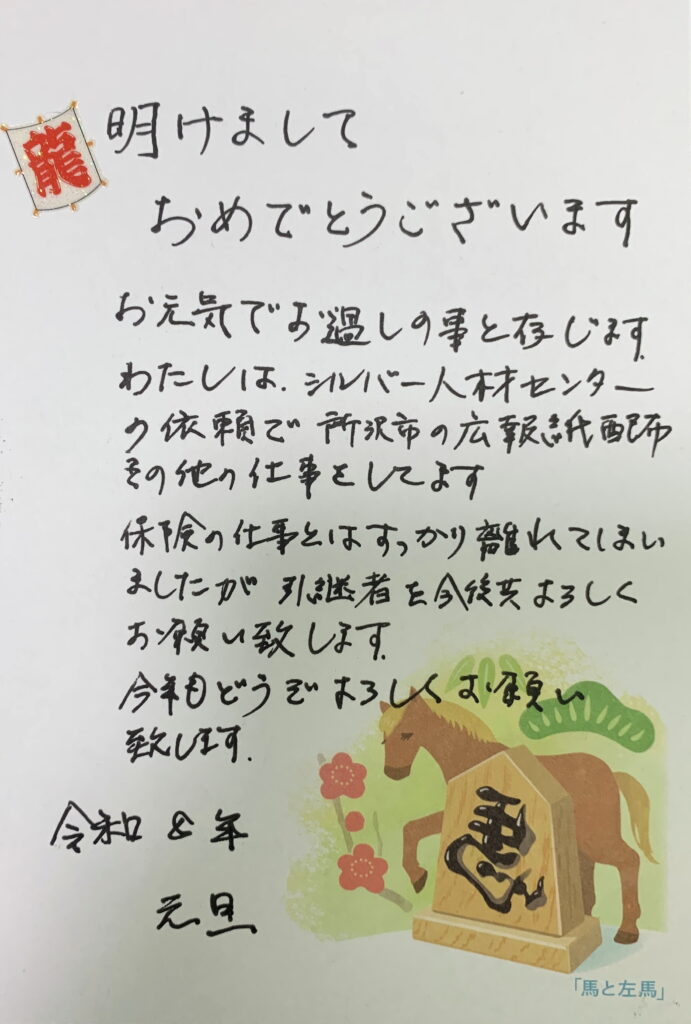 龍
明けまして
おめでとうございます
お元気でお過しの事と存じます.
わたしは、シルバー人材センター
の依頼で 所沢市の広報紙配布
その他の仕事をしてます
保険の仕事とはすっかり離れてしまい
ましたが 引継者を今後共よろしく
お願い致します.
今年もどうぞよろしくお願い
致します.
令和8年
元旦
「馬と左馬」